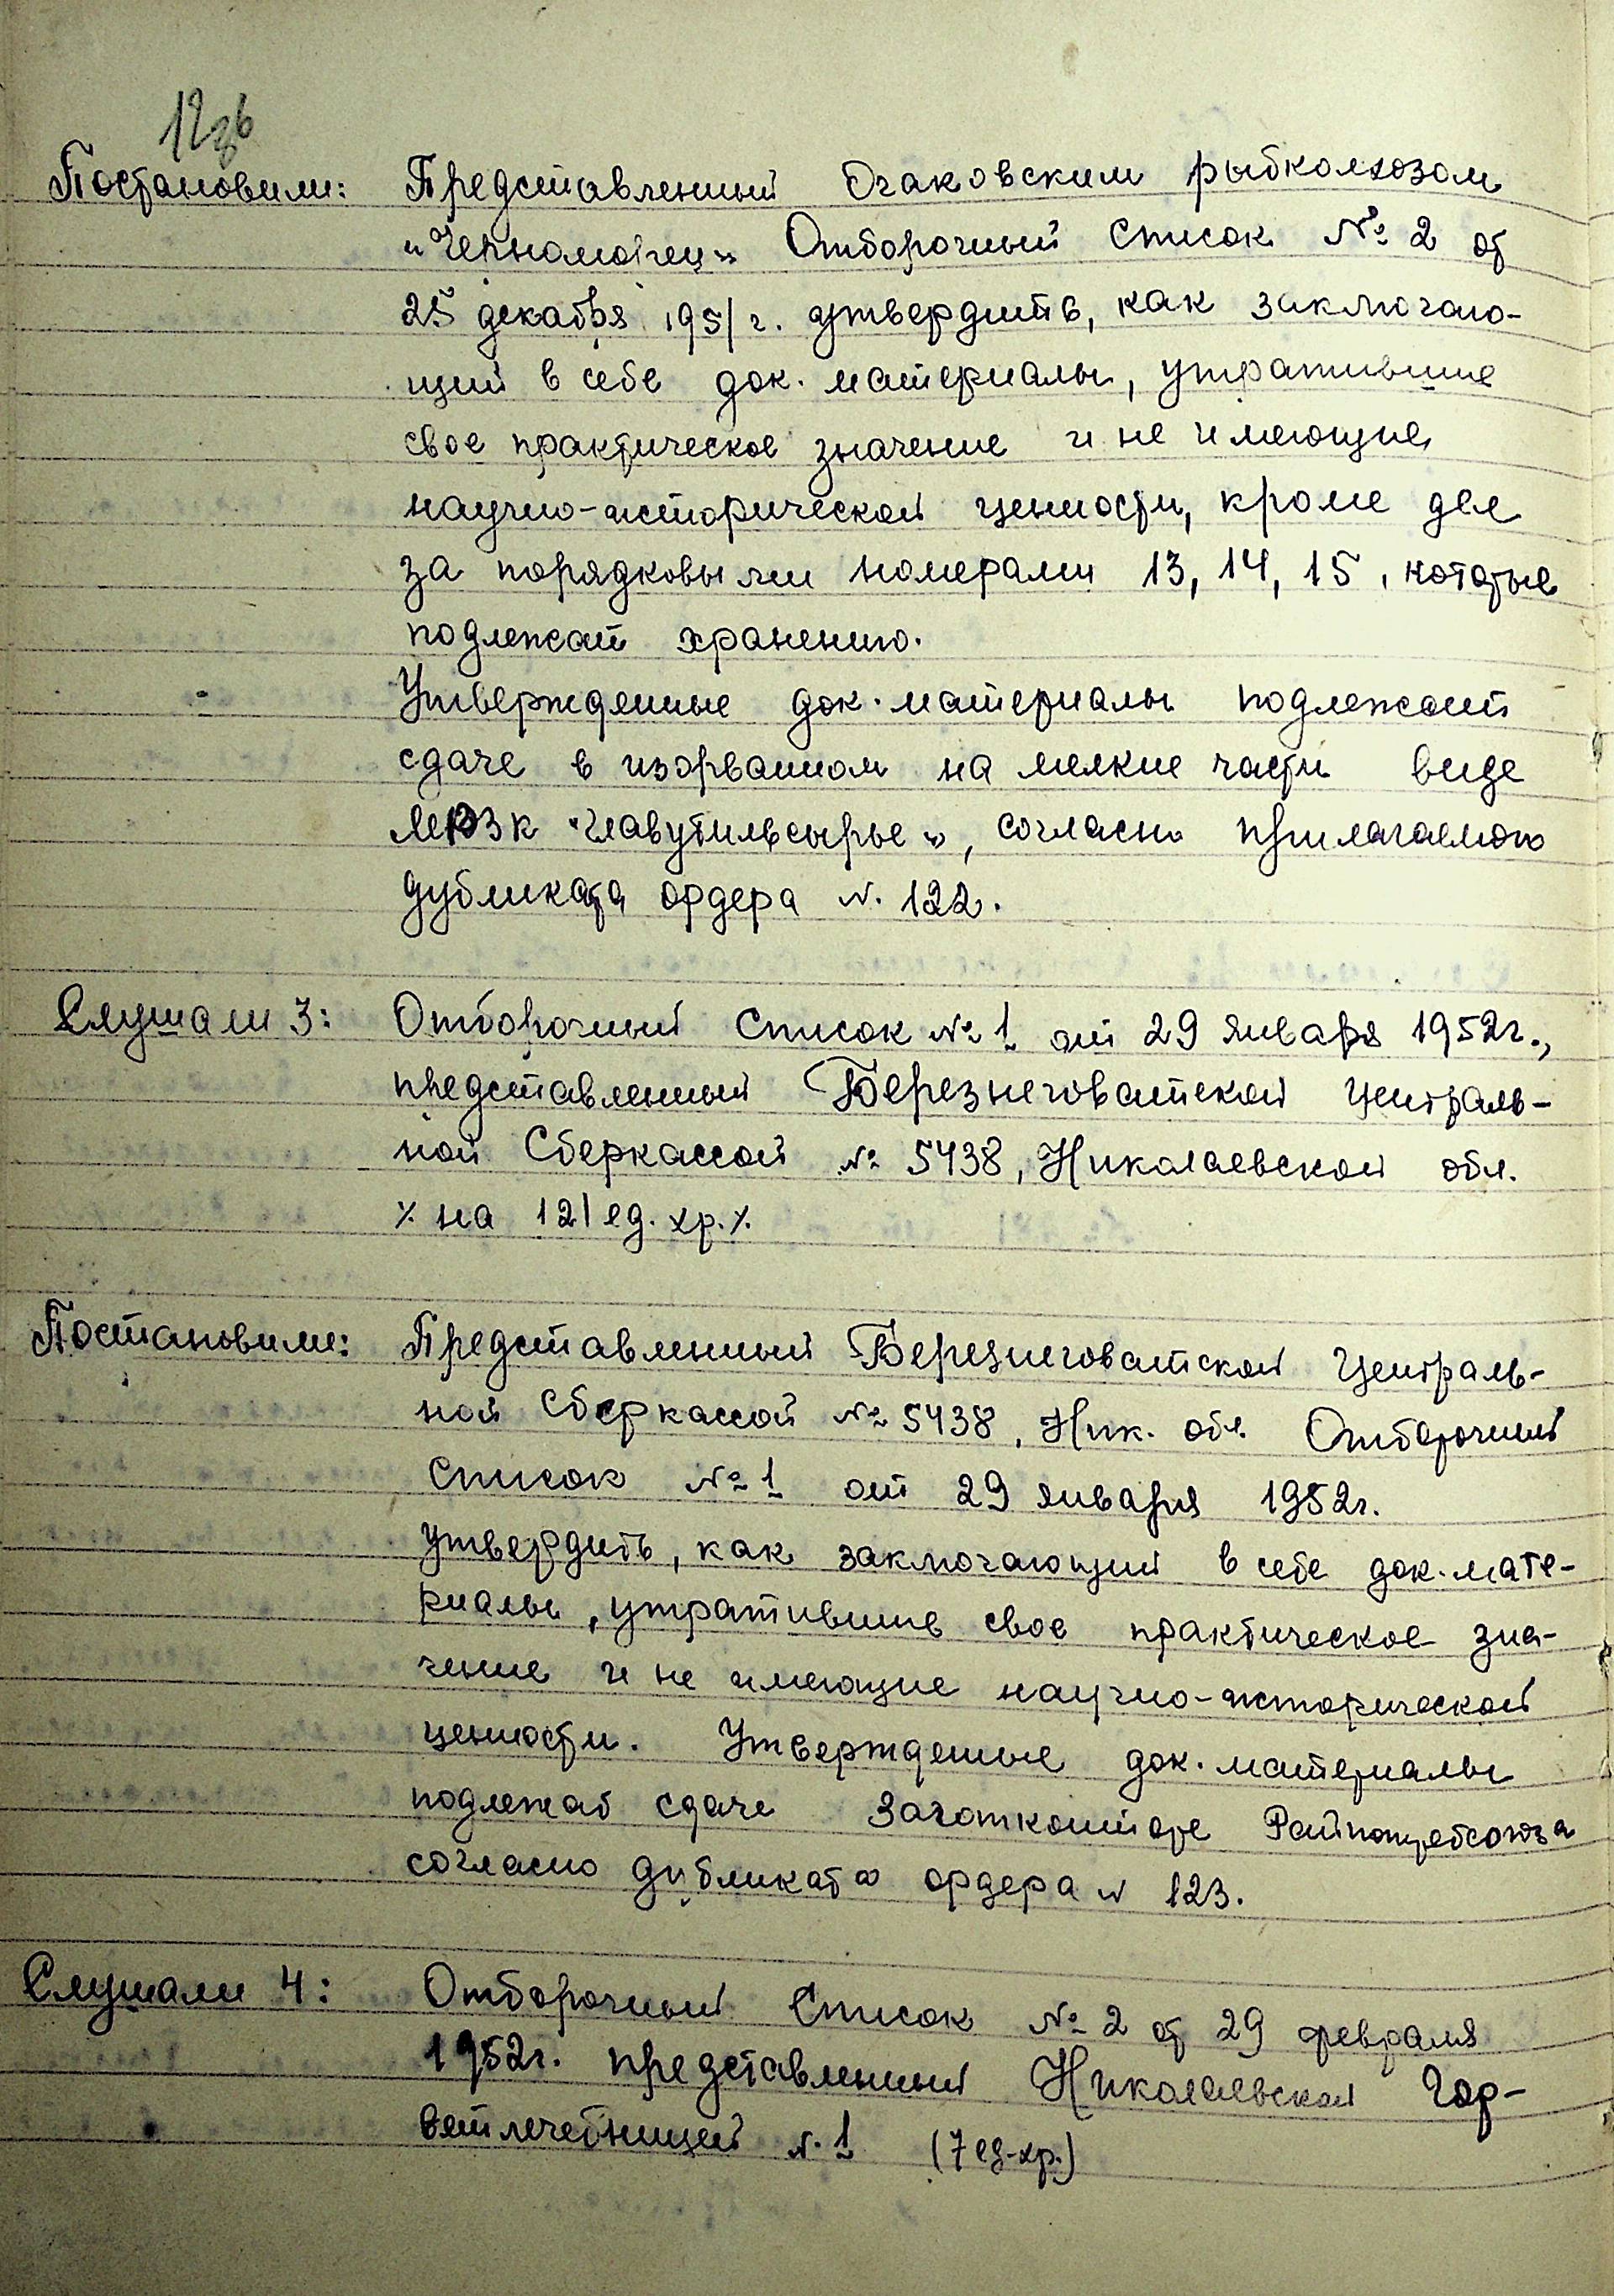 12зв
Постановили: Представленный Очаковским рыбколхозом
„Черноморец" Отборочный список № 2 от
25 декабря 1951 г. утвердить, как заключаю-
щий в себе док. материалы, утратившие
свое практическое значение и не имеющие
научно-исторической ценности, кроме дел
за порядковыми номерами 13, 14, 15, которые
подлежат хранению.
Утвержденные док. материалы подлежат
сдаче в изорванном на мелкие части виде
"Главутильсырье", согласно прилагаемого
дубликата ордера N. 122.
Слушали 3: Отборочный список № 1 от 29 января 1952г.,
представленный Березнеговатской Централь-
ной Сберкассой № 5438, Николаевской обл.
٪ на 121 ед. хр. ٪
Постановили: Представленный Березнеговатской Централь-
ной Сберкассой № 5438, Ник. обл. Отборочный
список № 1 от 29 января 1952г.
утвердить, как заключающий в себе док. мате-
риалы, утратившие свое практическое зна-
чение и не имеющие научно-исторической
ценности. Утвержденные док. материалы
подлежат сдаче Заготконторе Райпотребсоюза
согласно дубликата ордера N 123.
Слушали 4: Отборочный Список № 2 от 29 февраля
1952г. представленный Николаевской Гор-
ветлечебницей N. 1 (7 ед. хр.)